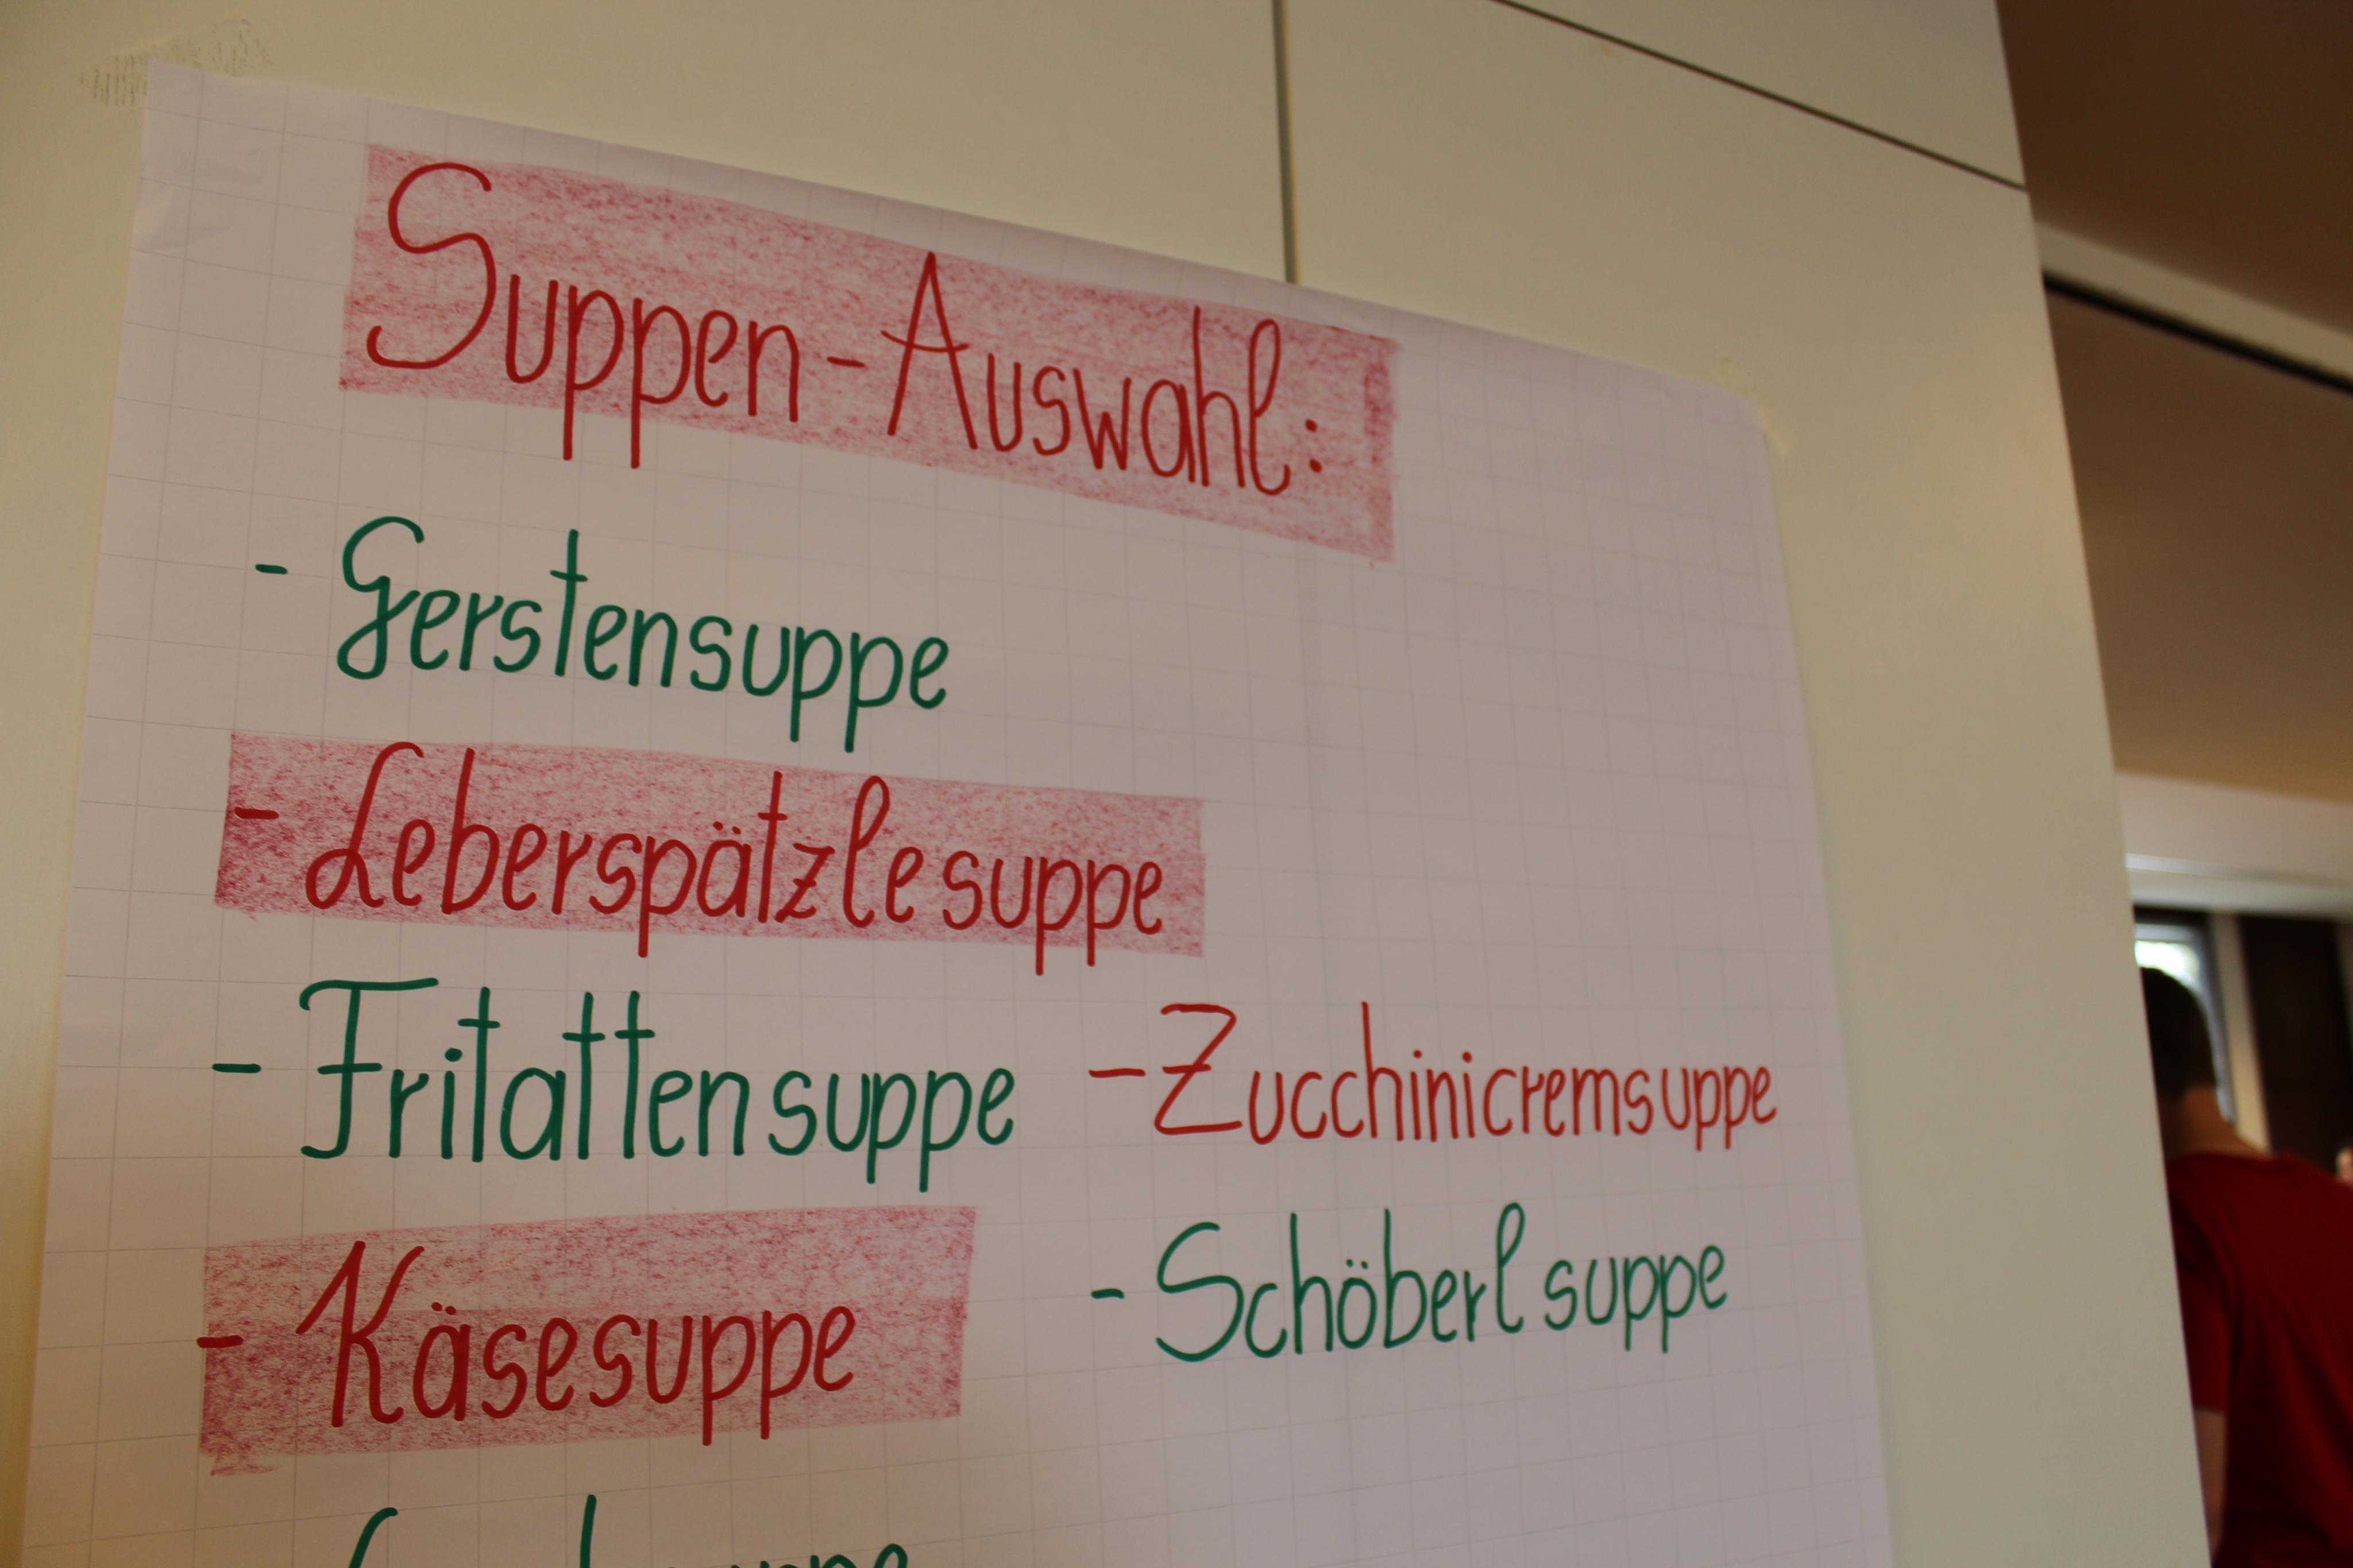 Suppen-Auswahl:
- Gerstensuppe
- Leberspätzlesuppe
- Fritattensuppe
- Käsesuppe
- Zucchinicremsuppe
- Schöberlsuppe